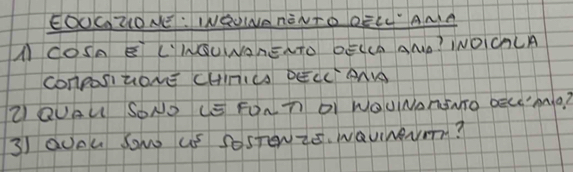 EDUCAZIONE: INQUINAMENTO DELL'ARIA
1) COSA E' L'INQUINAMENTO DELLA ARIA? INDICA LA
COMPOSIZIONE CHIMICA DELL'ARIA
2) QUALI SONO LE FONTI DI INQUINAMENTO DELL'ARIA?
3) QUALI SONO LE SOSTANZE INQUINANTI?